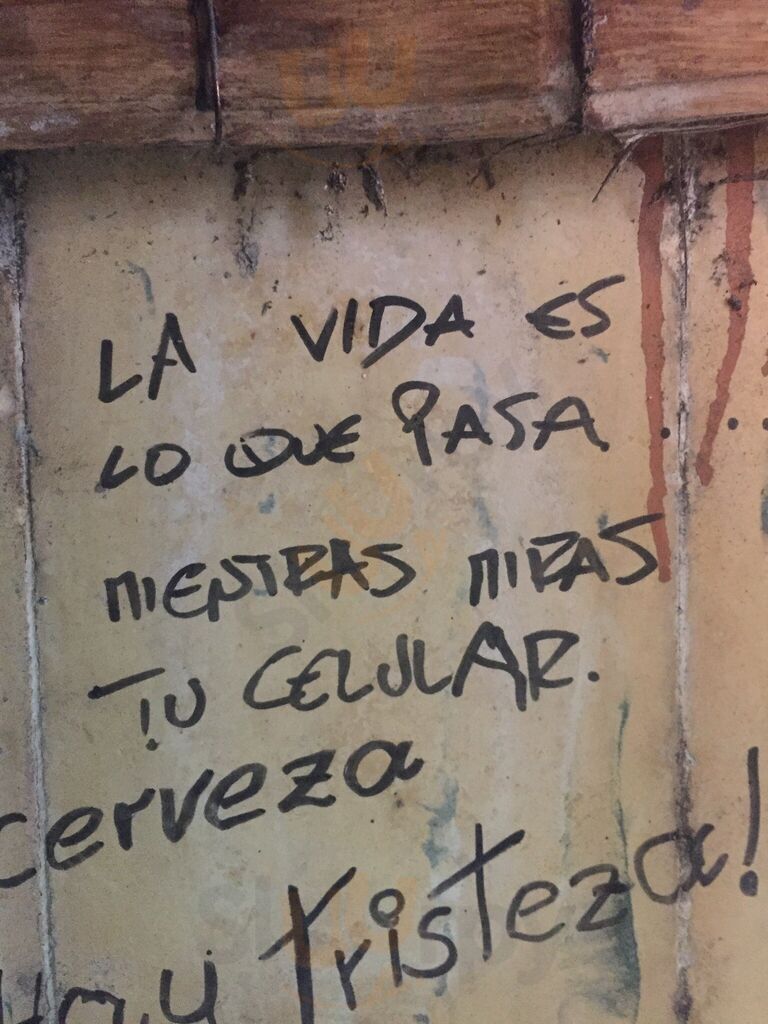 LA VIDA ES
LO QUE PASA...
MIENTRAS MIRAS
TU CELULAR.
cerveza
tristeza!